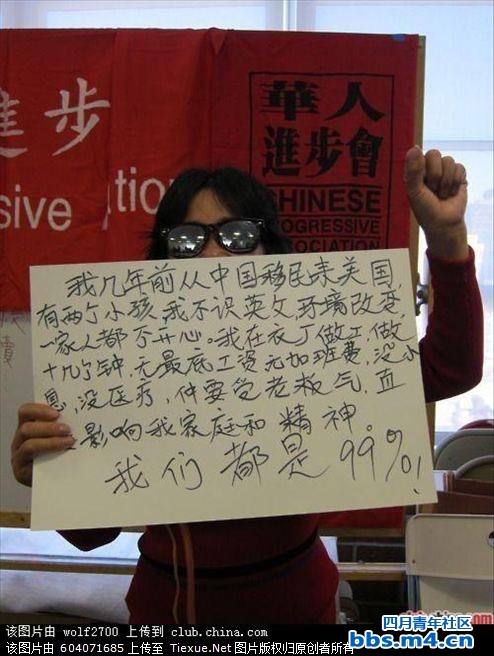 進步
華人
進步會
sive
iation
CHINESE
ROGRESSIVE
SSOCIATION
我几年前从中国移民来美国,
有两个小孩,我不识英文,环境改变,
一家人都不开心。我在衣厂做工,做
十几个钟,无最底工资无加班费,没小
息,没医疗,仲要受老板气,直
影响我家庭和精神。
我们都是99%!
该图片由 wolf2700 上传到 club.china.com
该图片由 604071685 上传至 Tiexue.Net 图片版权归原创者所有
四月青年社区
bbs.m4.cn